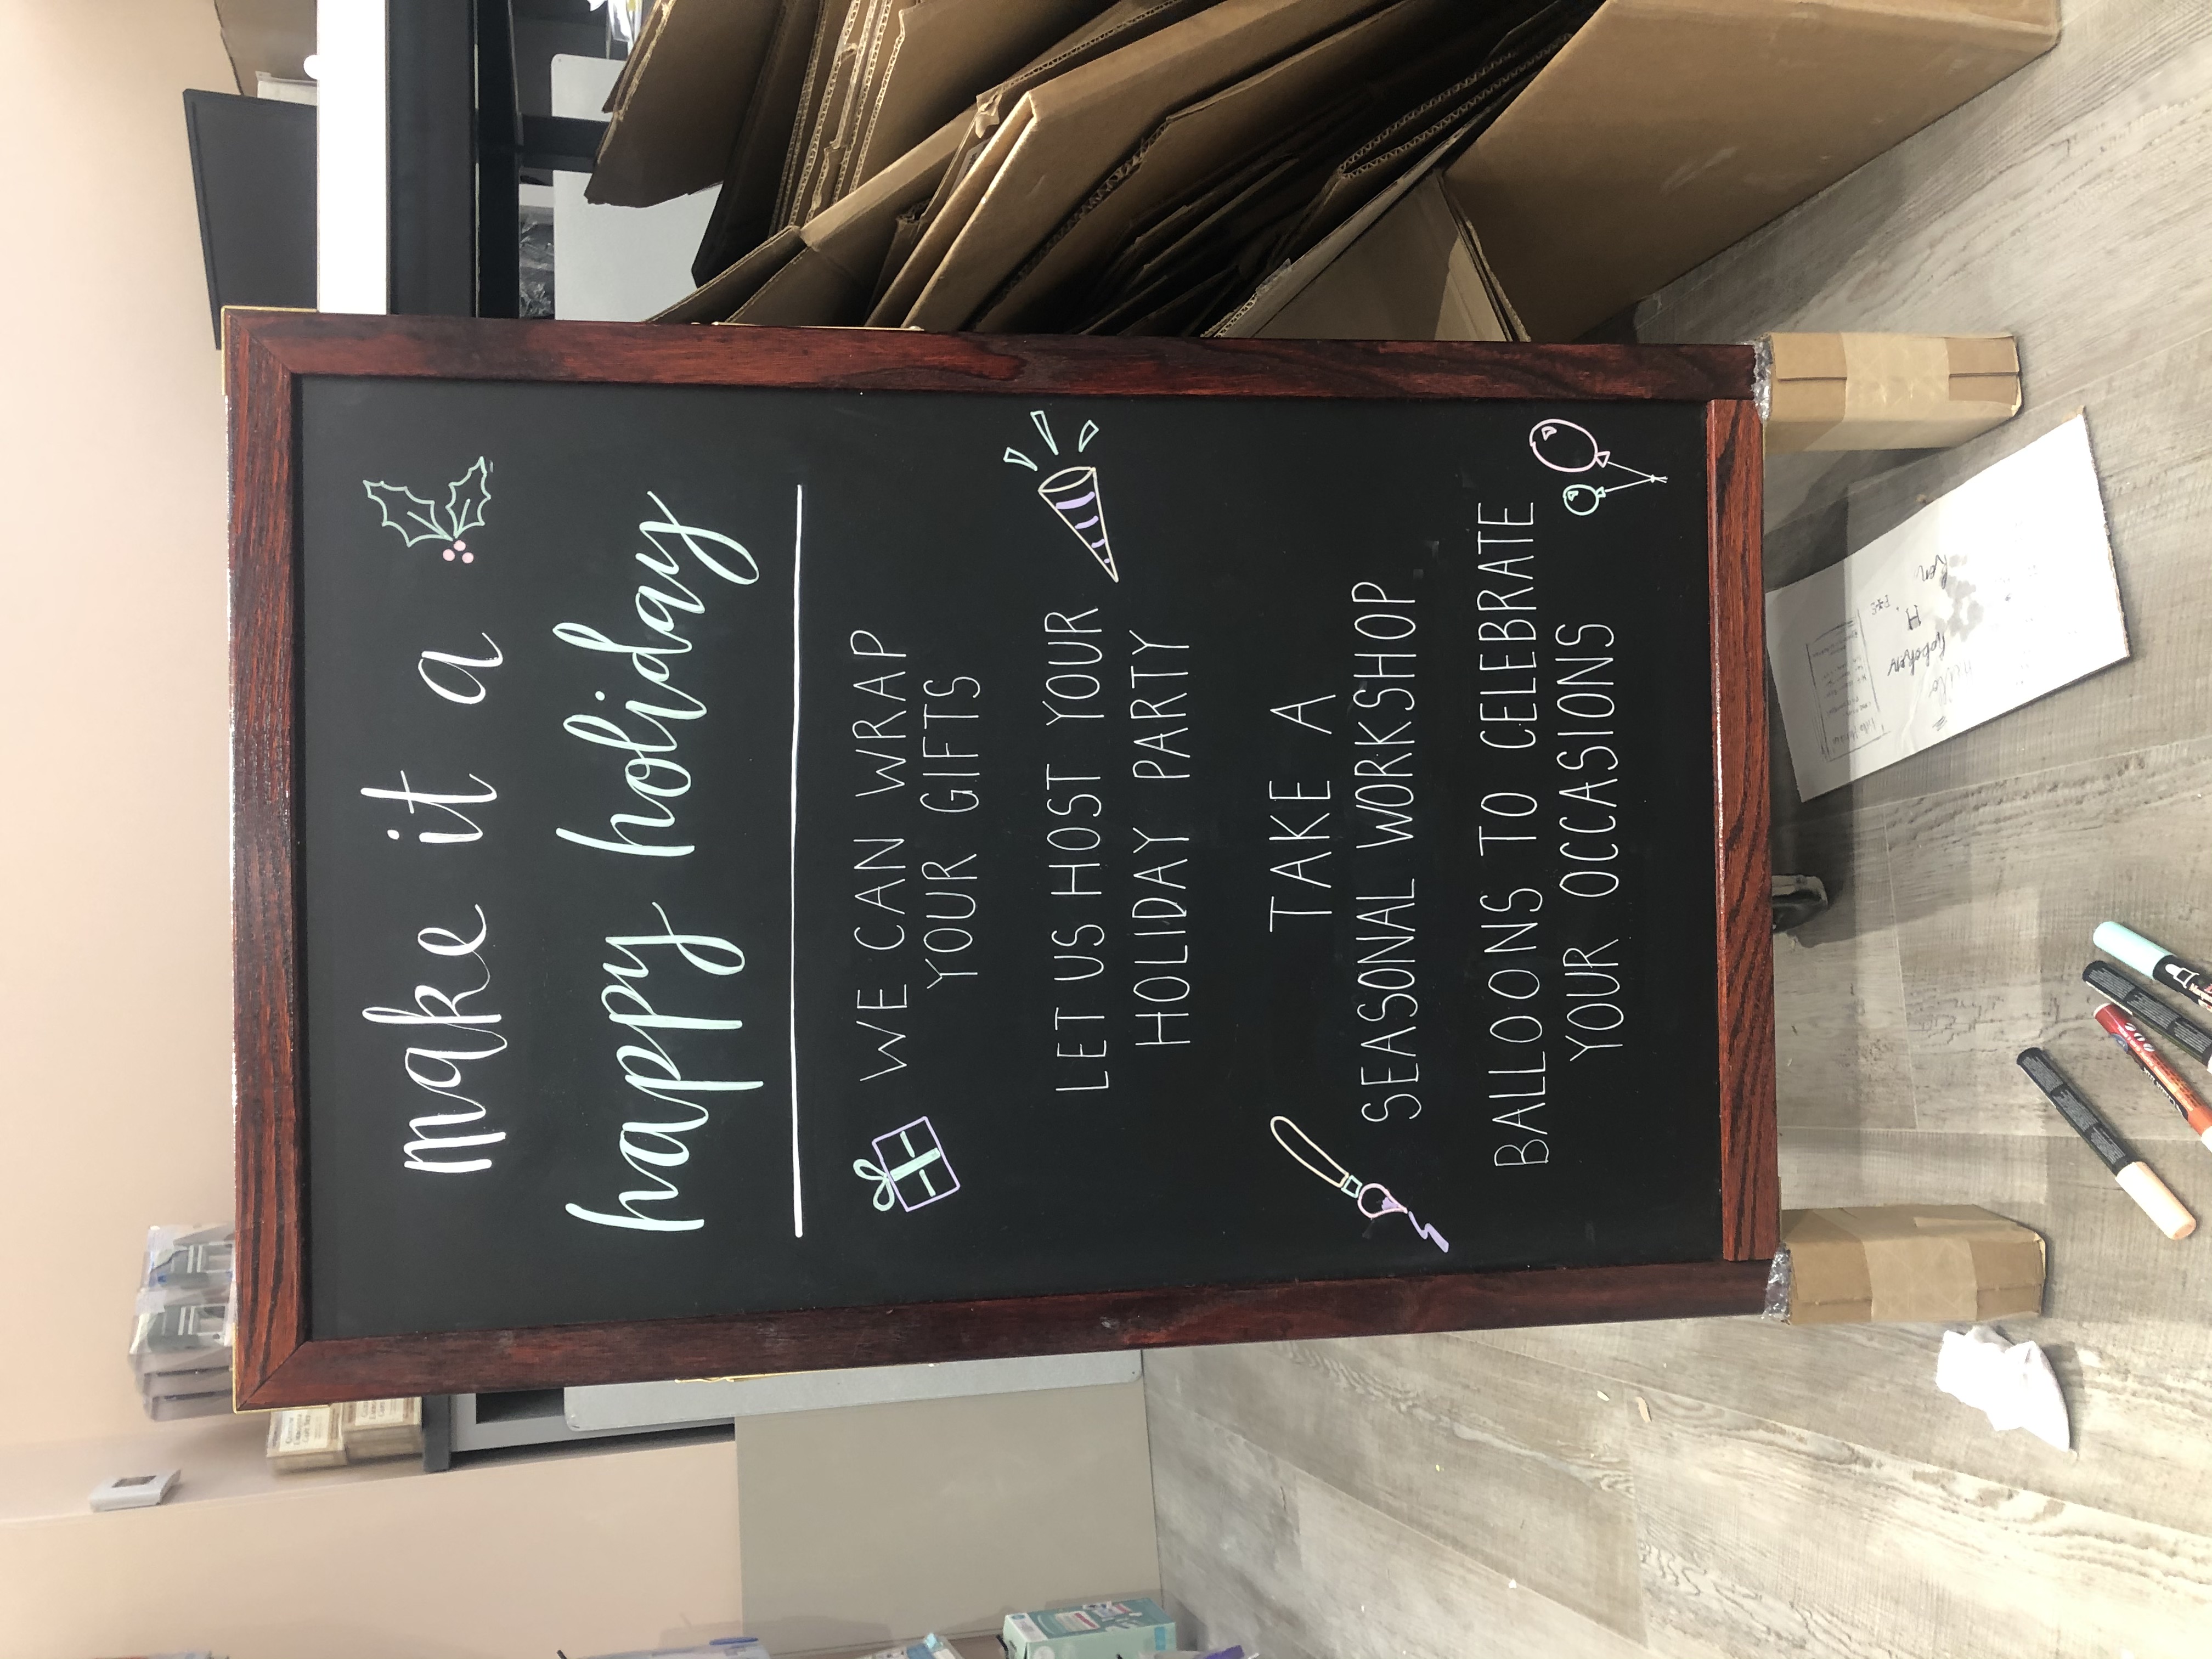 make it a
happy holiday
WE CAN WRAP
YOUR GIFTS
LET US HOST YOUR
HOLIDAY PARTY
TAKE A
SEASONAL WORKSHOP
BALLOONS TO CELEBRATE
YOUR OCCASIONS
Hello
Hoboken
H.